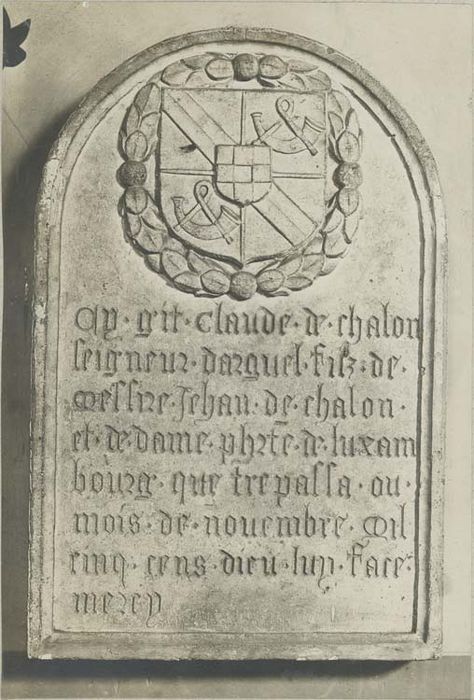 Cy · git · Claude · de · chalon
seigneur · darguel · filz · de ·
Messire · Jehan · de · chalon ·
et · de · dame · phrte · de · luxam
bourg · que · trepassa · ou ·
mois · de · novembre · Mil
cinq · cens · dieu · luy · face ·
mercy